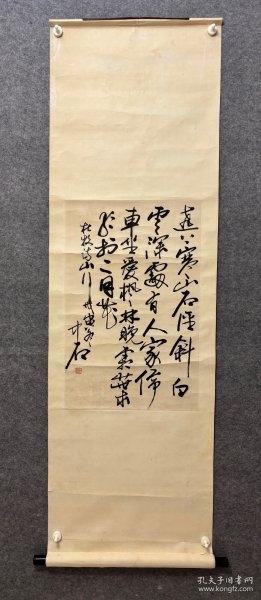 遠上寒山石徑斜白
雲深處有人家停
車坐愛楓林晚霜葉紅
於於二月花
杜牧詩山行
石
孔夫子旧书网
www.kongfz.com